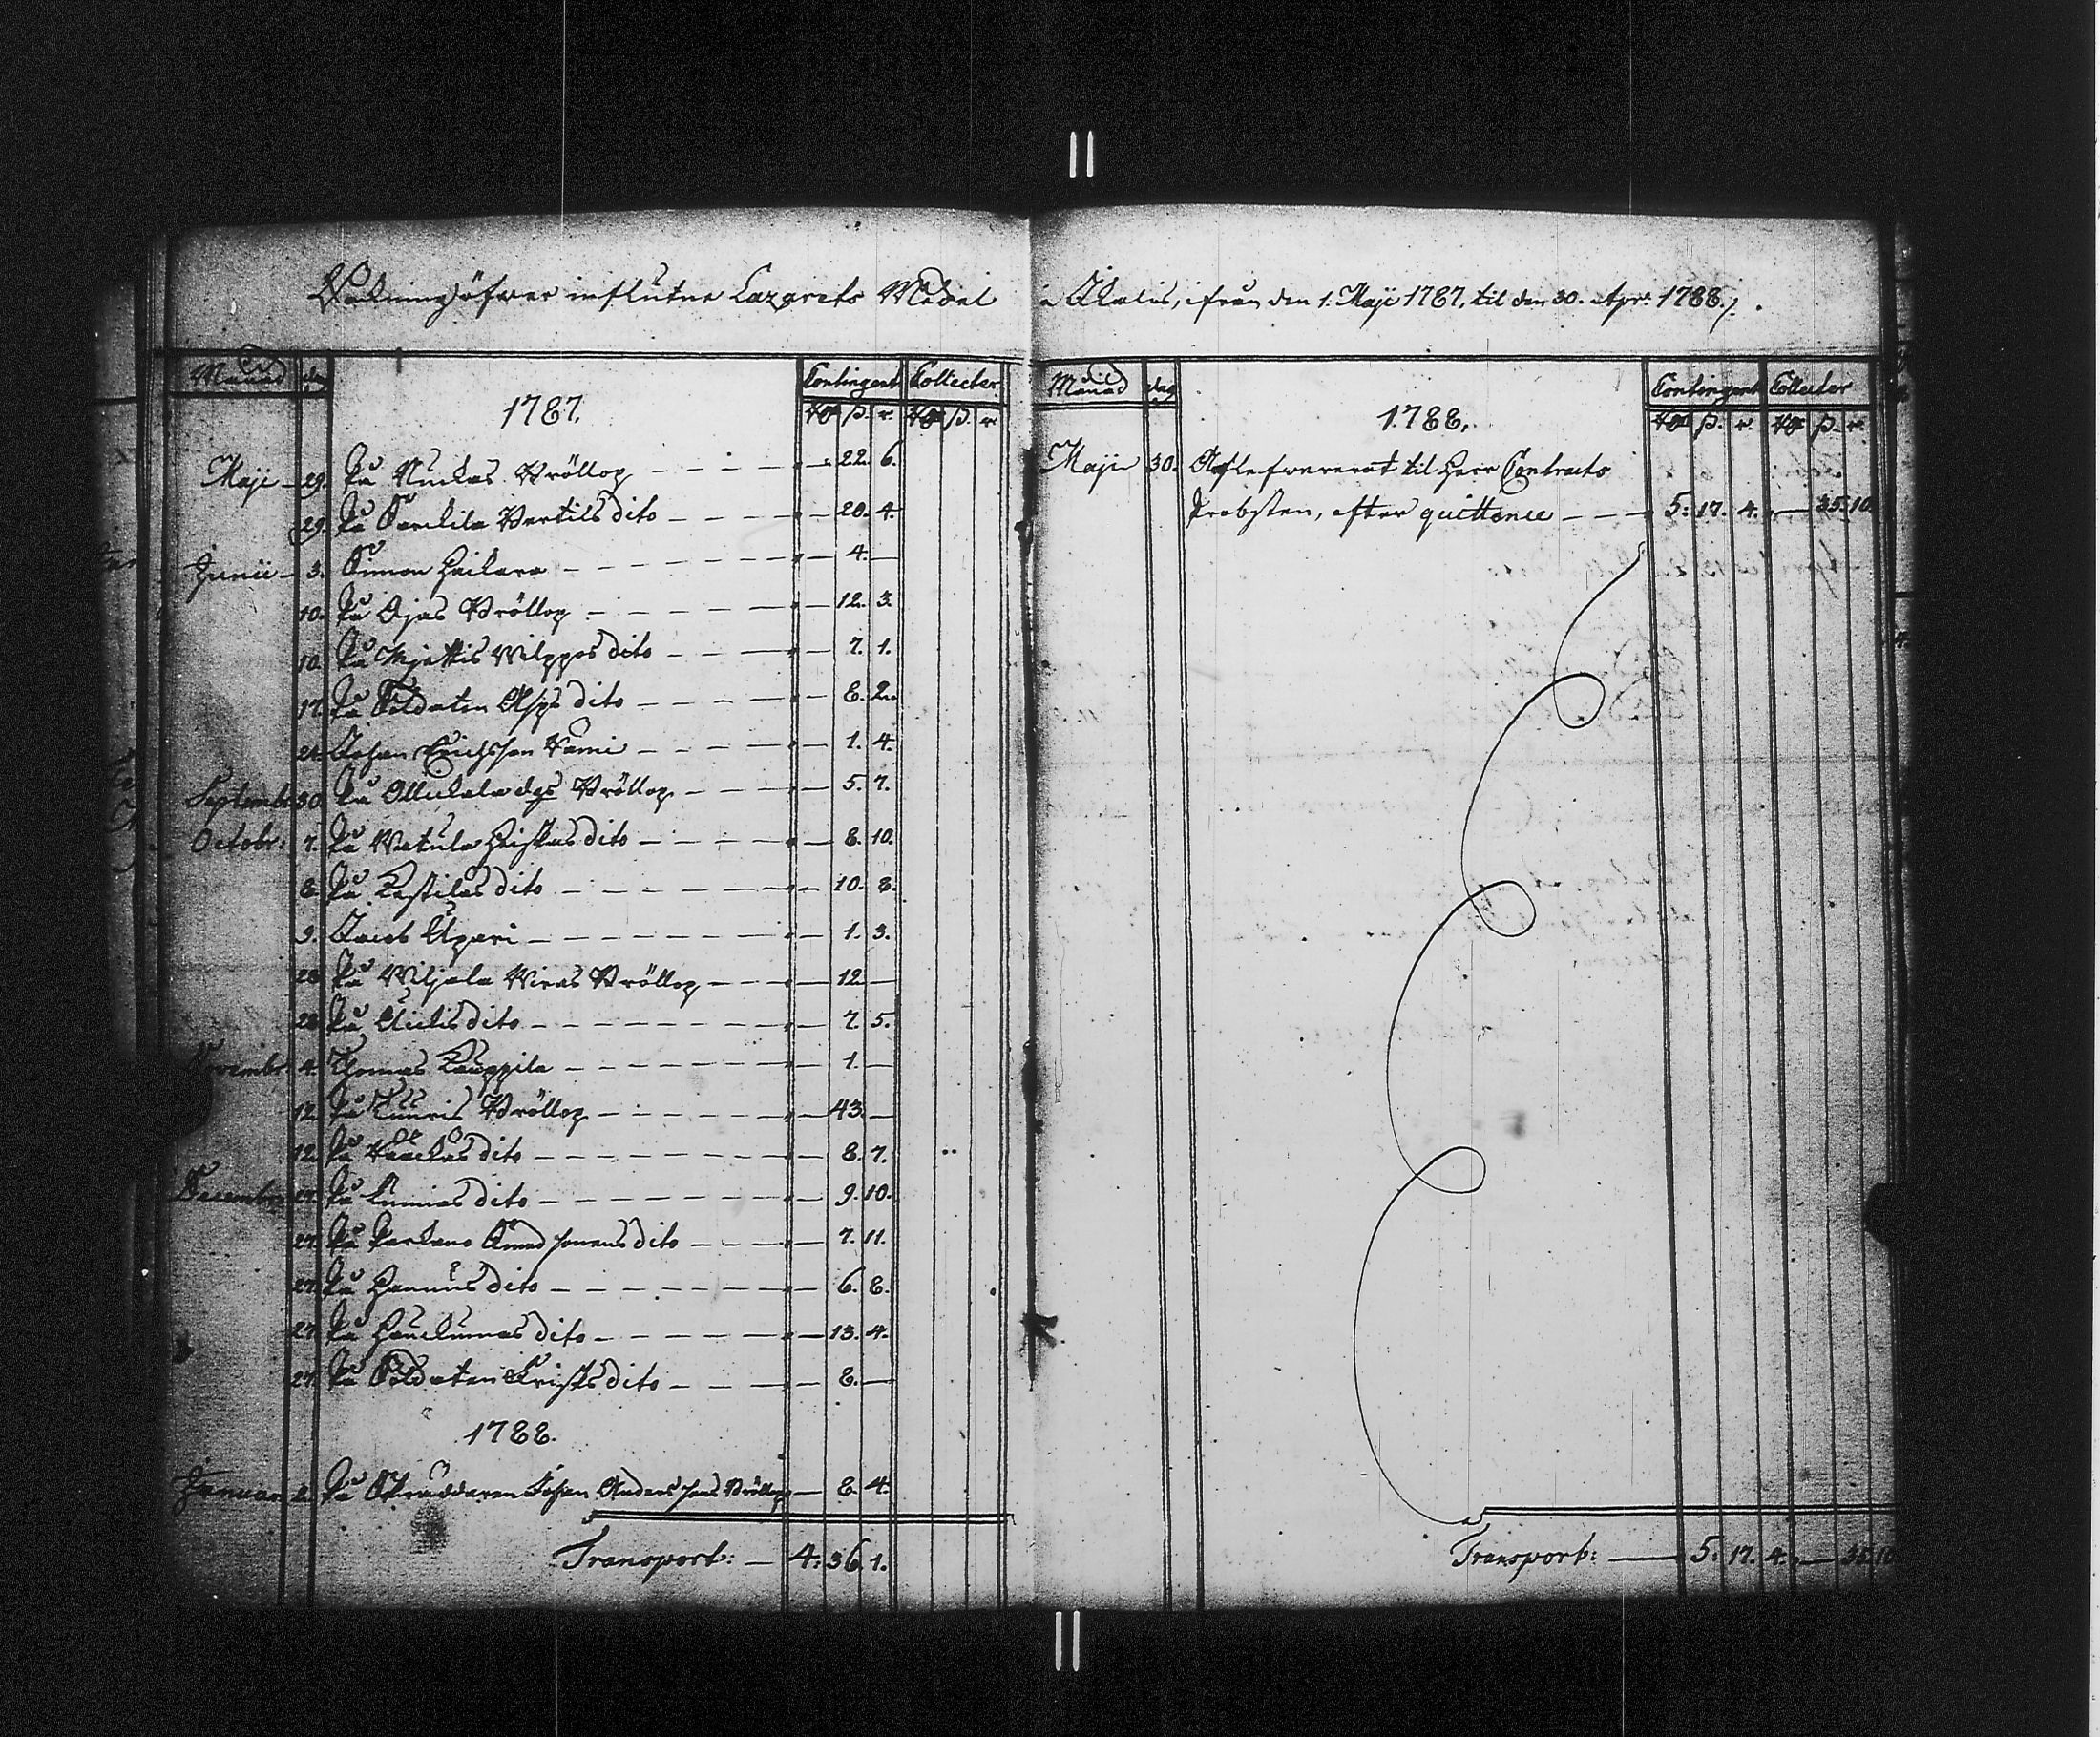 Räkning öfwer influtne Lazarets Medel
Månad dag Contingent Collecter
1787. β. r. β. r.
Maji 29. På Nuckas Bröllop 22. 6.
29. På Bertils dito 20. 4.
Junii 3. Simon Heikara 4.
10. På Ojas Bröllop 12. 3.
10. På Mjettis Wilppos dito 7. 1.
17. På Soldaten Asps dito 8. 2.
24. Johan Erichsson 1. 4.
Septembr: 30. På Ollickala dgs Bröllop 5. 7.
Octobr: 7. På Watula Heiskas dito 8. 10.
8. På Kestilas dito 10. 8.
9. Jacob Upari 1. 3.
28. På Wiljala Bröllop 12.
28. På dito 7. 5.
Novembr: 4. Thomas Kauppila 1.
12. På Bröllop 43.
12. På dito 8. 7.
Decembr: 27. På dito 9. 10.
27. På Parkano dito 7. 11.
27. På Hannus dito 6. 8.
27. På dito 13. 4.
27. På Soldaten dito 8.
1788.
Januar: 2. På Skräddaren Johan Anderssons Bröllop 8. 4.
Transport: 4. 36. 1.
i Ikalis, ifrån den 1. Maji 1787, til den 30. Apr: 1788.
Månad dag Contingent Collecter
1788. β. r. β. r.
Maji 30. Aflefwererat til Herr Contracts
Probsten, efter quittence 5. 17. 4. 35. 10.
Transport: 5. 17. 4. 35. 10.